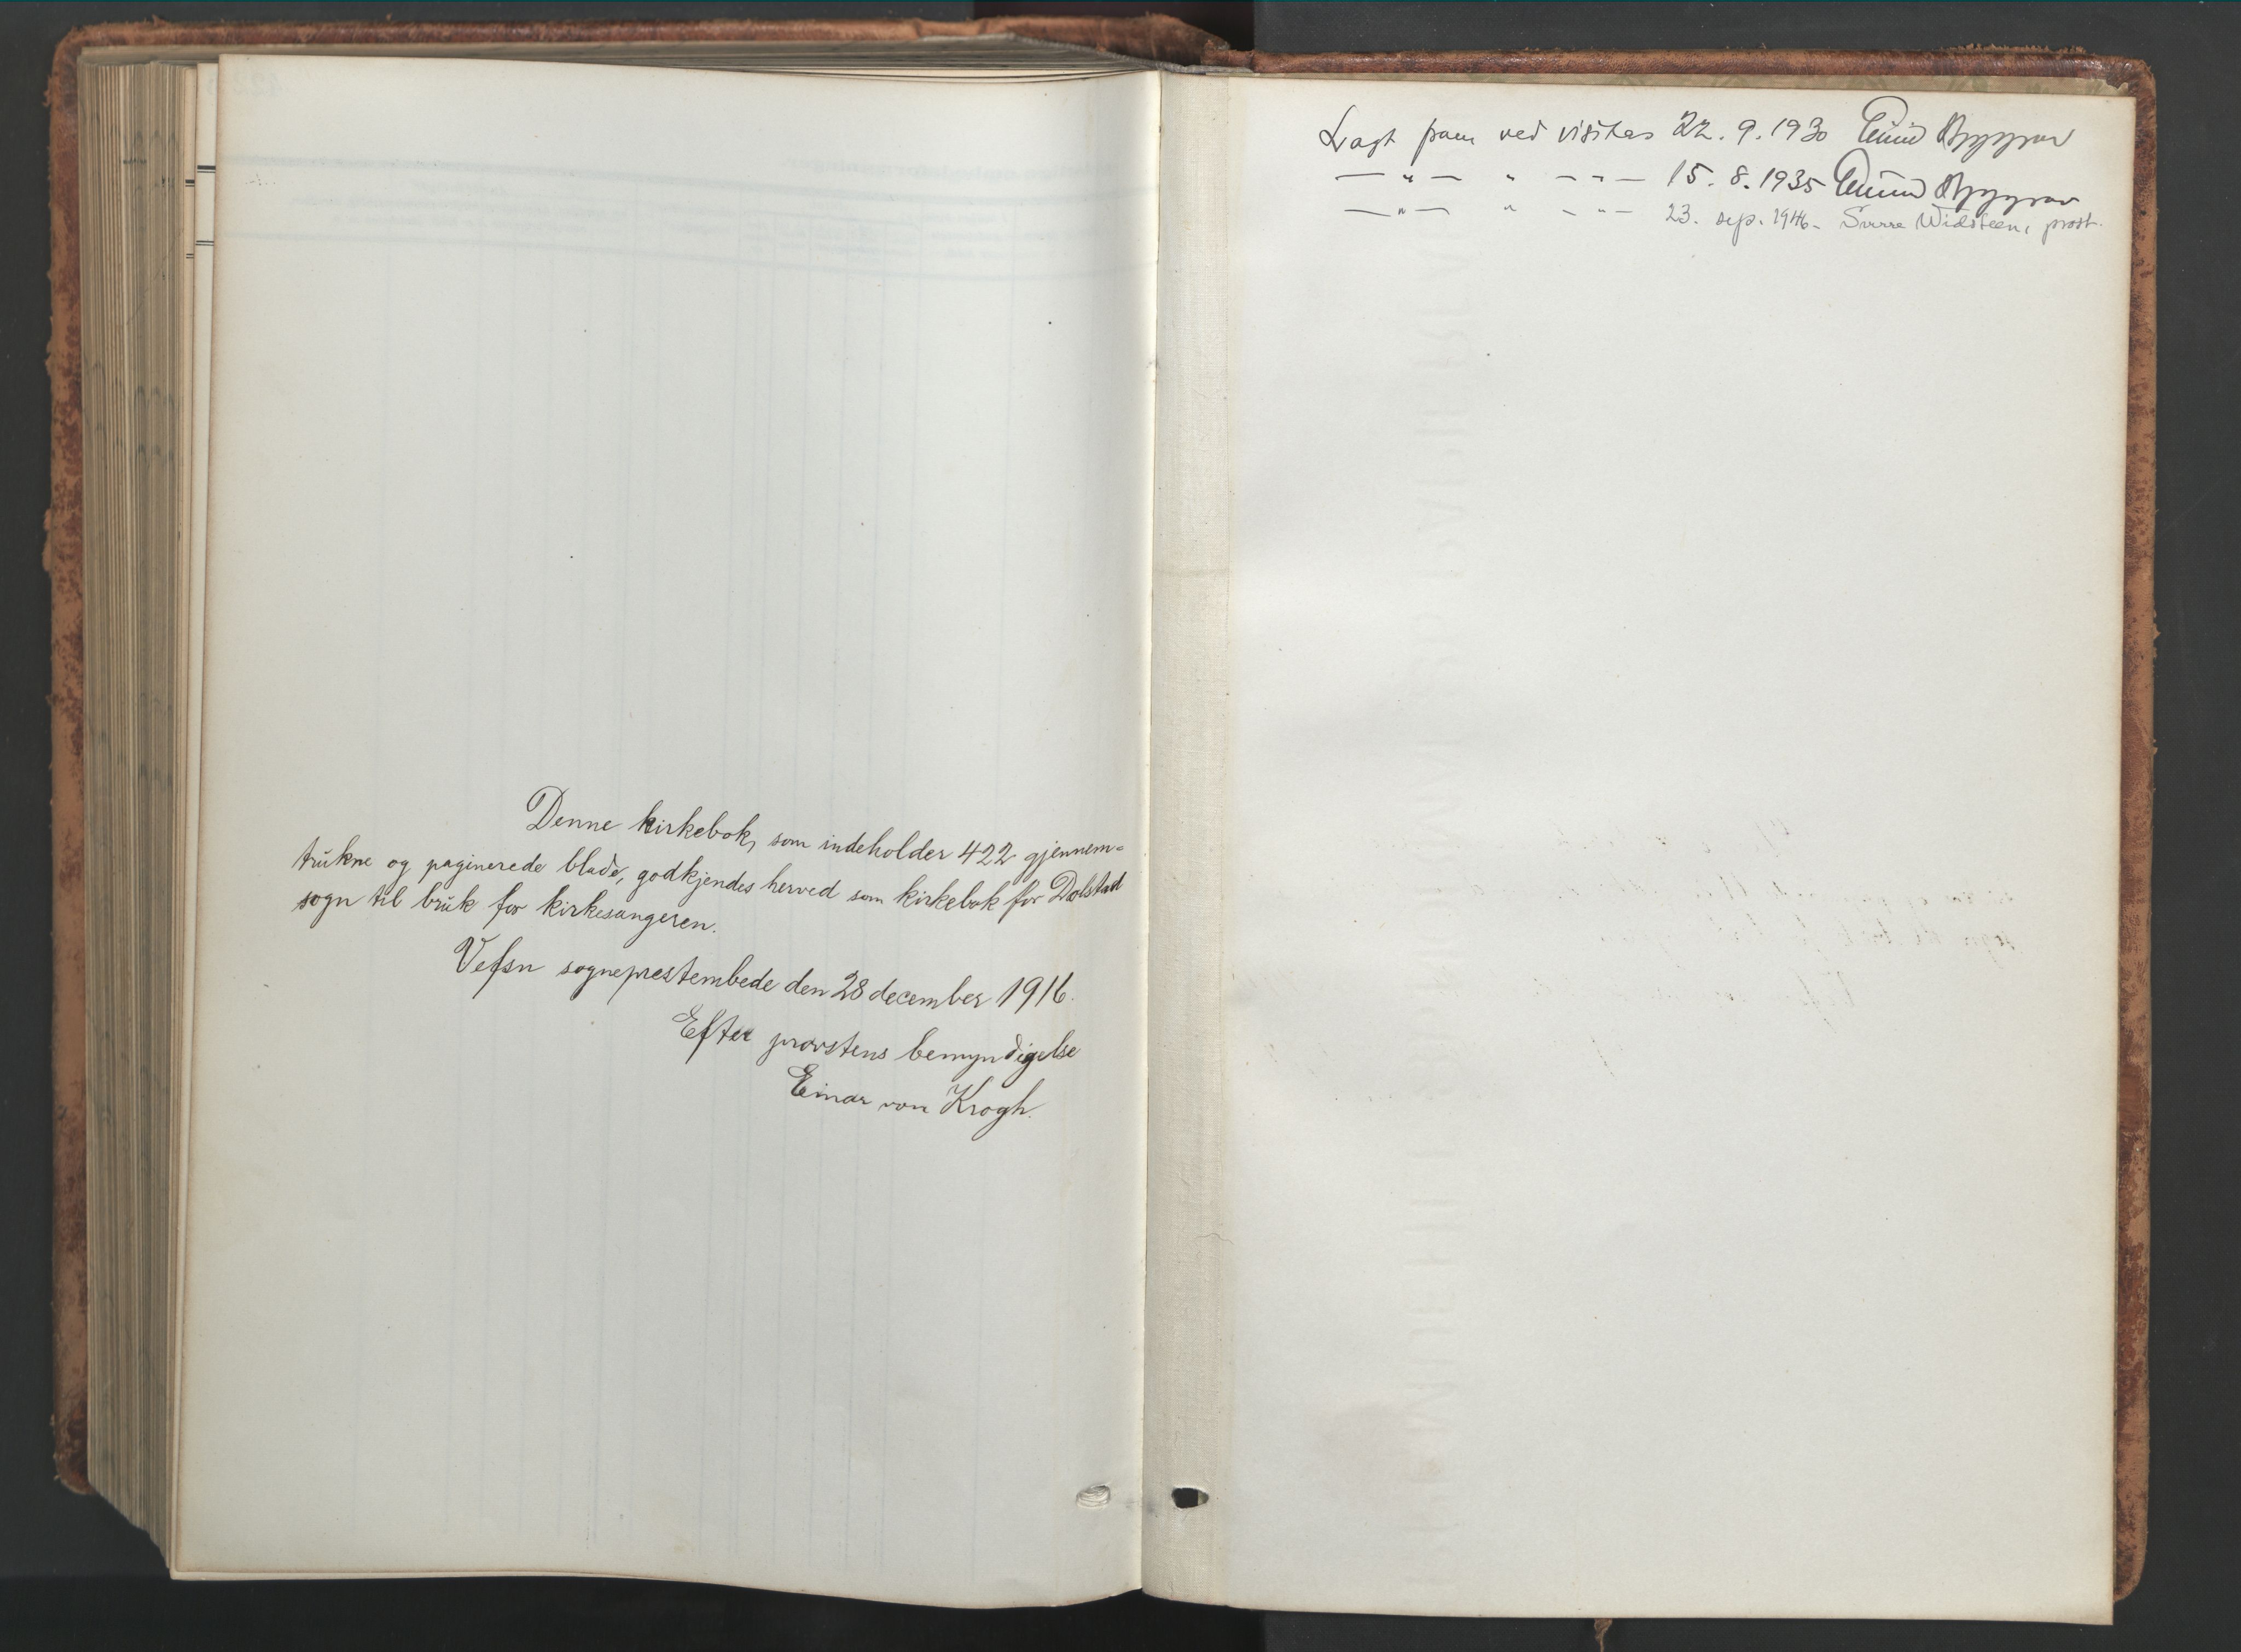 Denne kirkebok, som indeholder 422 gjennem=
trukne og paginerede blade, godkjendes herved som kirkebok for Dolstad
sogn til bruk for kirkesangeren.
Vefsn sogneprestembede den 28 december 1916.
Efter provstens bemyndigelse
Einar von Krogh.
Lagt fram ved visitas 22. 9. 1930
— " — " — " — 15. 8. 1935
— " — " — " — 23. sep. 1946. Sverre Widsteen, prost.